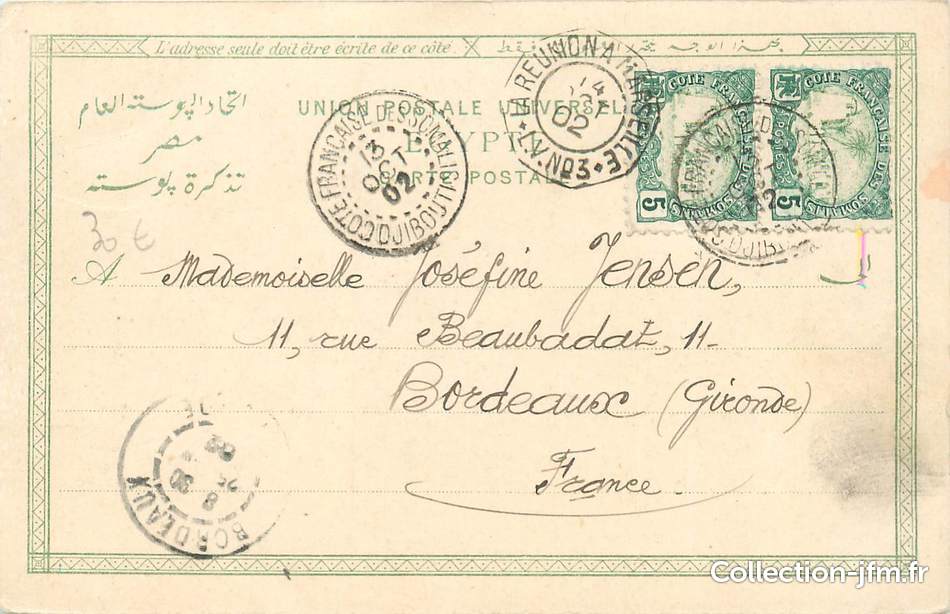 L'adresse seule doit être écrite de ce côté.
UNION POSTALE UNIVERSELLE
EGYPTE
CARTE POSTALE
اتحاد البوسته العام
مصر
تذكرة بوسته
COTE FRANÇAISE DES SOMALIS
DJIBOUTI
13
OCT
02
LA REUNION A MARSEILLE
L.V. No3
14
02
COTE FRANÇAISE DES SOMALIS
5
COTE FRANÇAISE DES SOMALIS
5
30 €
A Mademoiselle Joséfine Jensen,
11, rue Beaubadat, 11-
Bordeaux (Gironde)
France.
BORDEAUX
8 30
02
Collection-jfm.fr